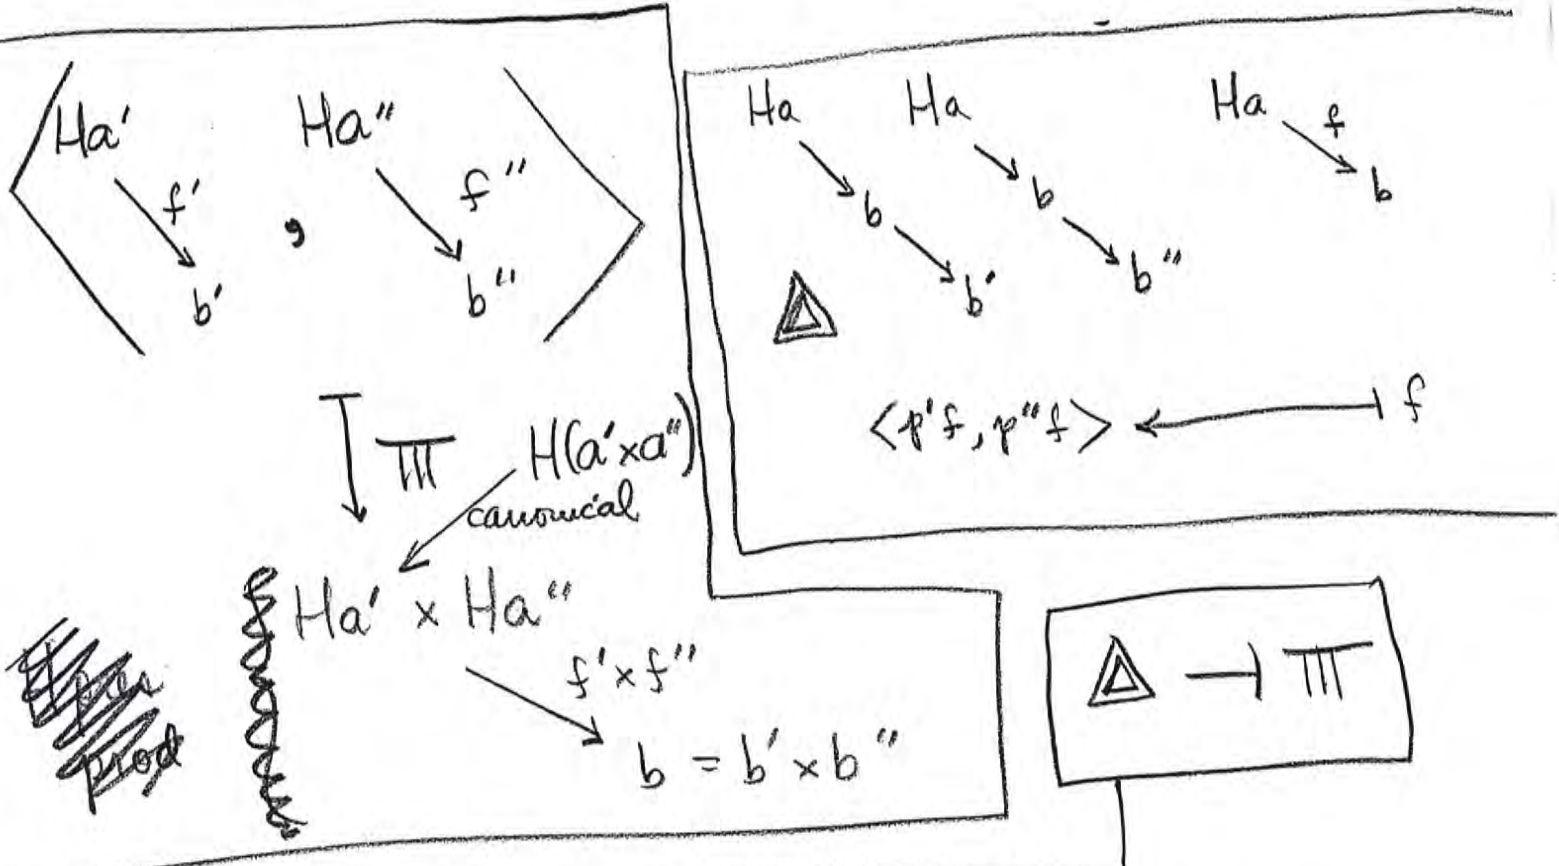 ⟨ Ha′ , Ha″ ⟩
f′ f″
b′ b″
H(a′×a″)
canonical
Ha′ × Ha″
f′×f″
b = b′×b″
prod
Ha Ha Ha f
b b b
b′ b″
<p′f, p″f> ⟵| f
△ ⊣ Π